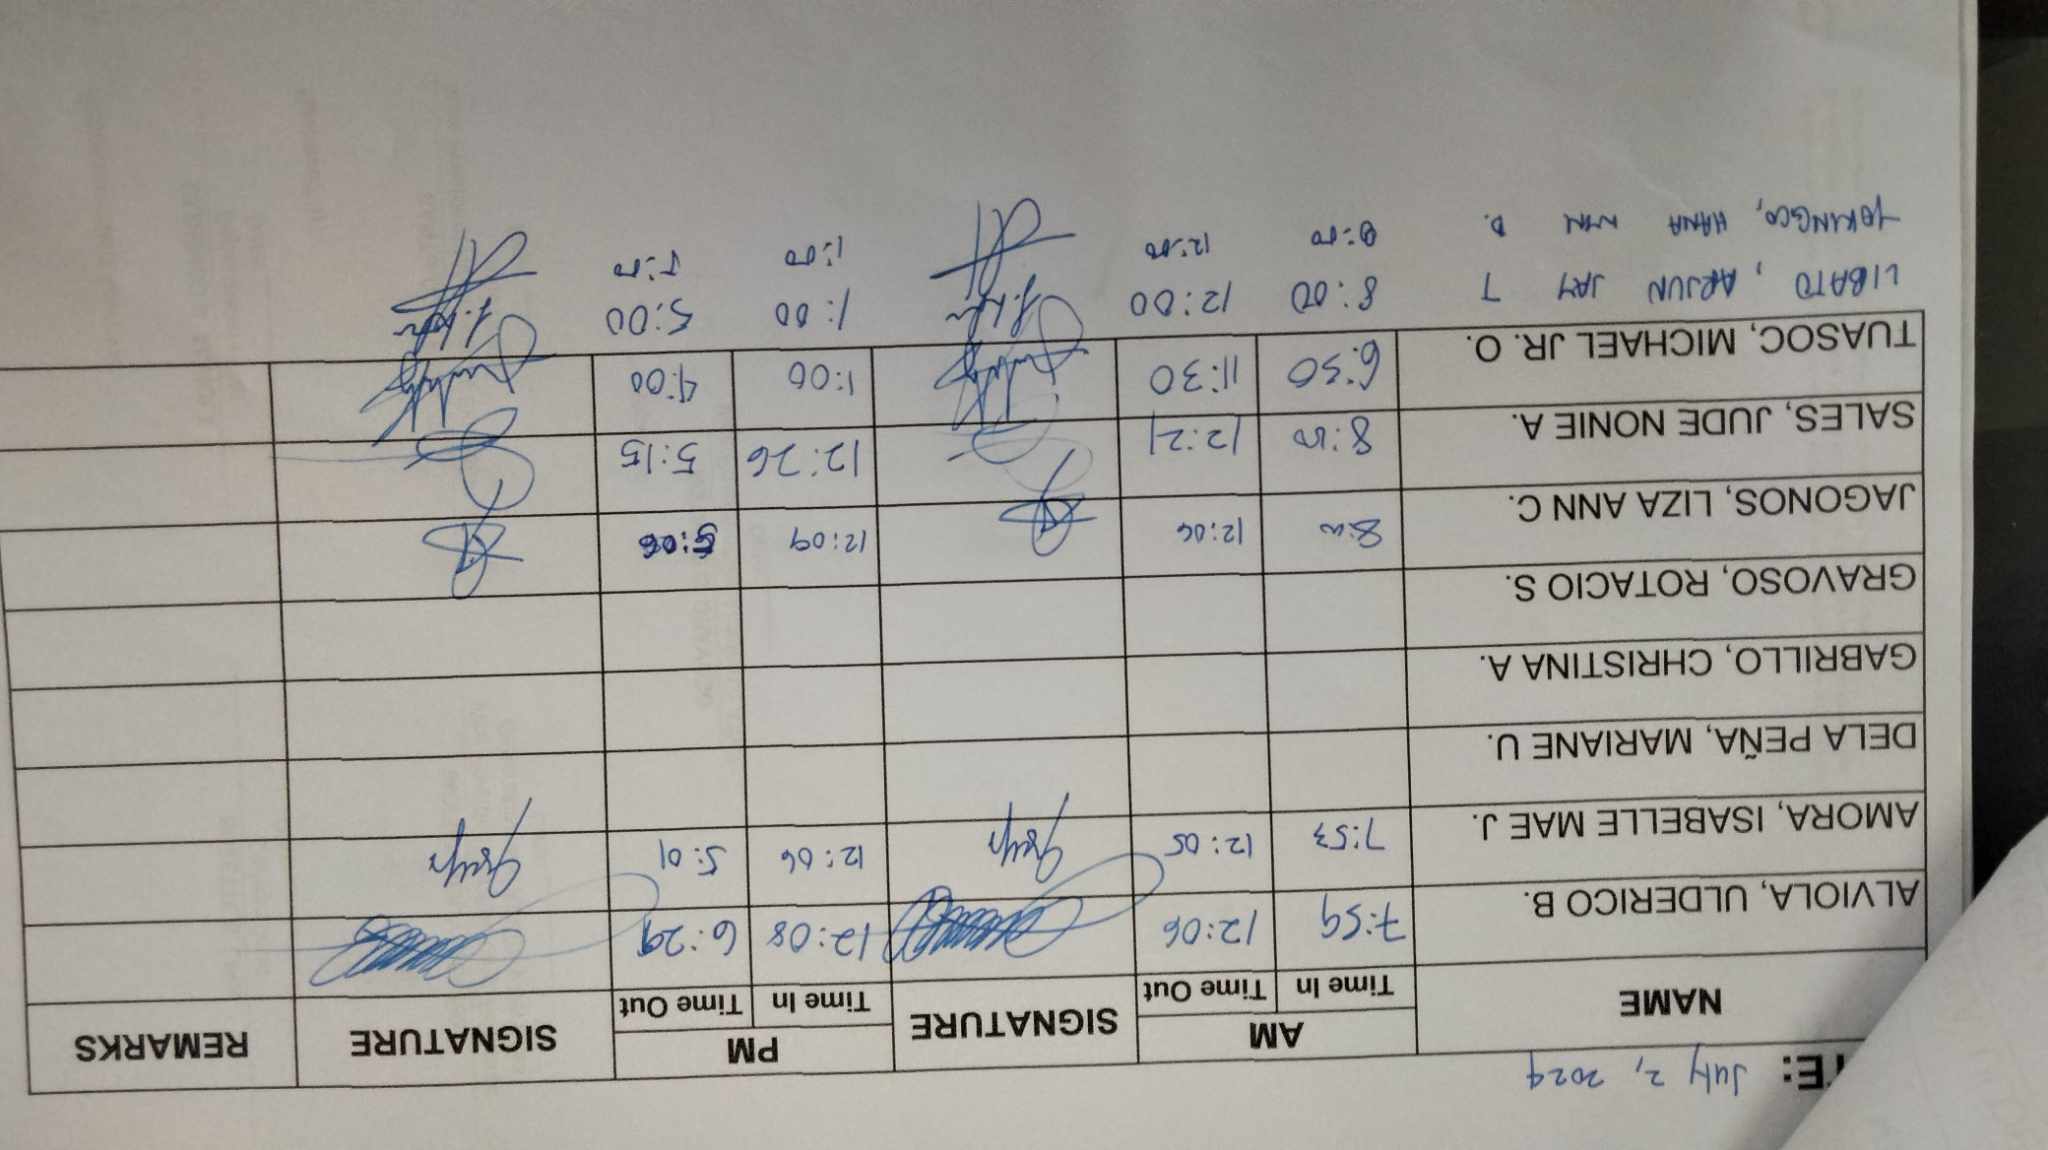 TE: July 2, 2024
NAME AM SIGNATURE PM SIGNATURE REMARKS
Time In Time Out Time In Time Out
ALVIOLA, ULDERICO B. 7:59 12:06 12:08 6:29
AMORA, ISABELLE MAE J. 7:53 12:05 12:06 5:01
DELA PEÑA, MARIANE U.
GABRILLO, CHRISTINA A.
GRAVOSO, ROTACIO S.
JAGONOS, LIZA ANN C. 8:00 12:06 12:09 5:06
SALES, JUDE NONIE A. 8:00 12:21 12:26 5:15
TUASOC, MICHAEL JR. O. 6:30 11:30 1:00 4:00
LIBATO, ARJUN JAY T 8:00 12:00 1:00 5:00
YOKINGCO, HANA D. 8:00 12:00 1:00 5:00